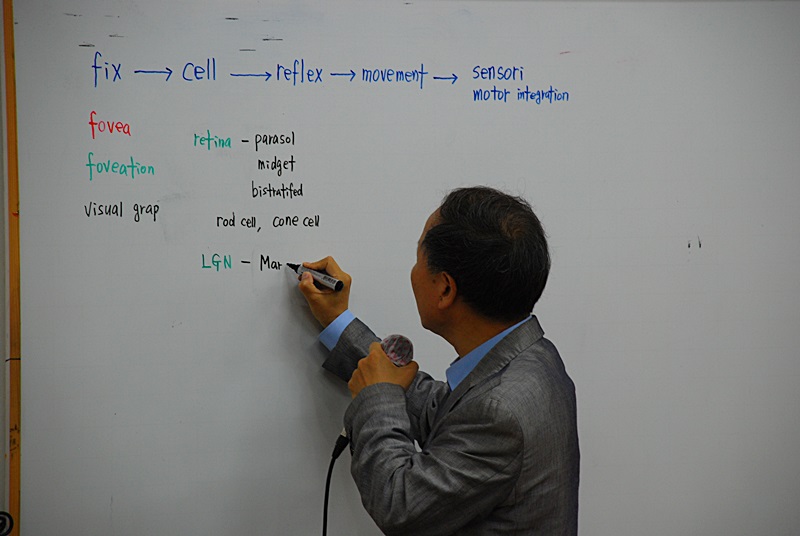 fix → cell → reflex → movement → sensori
motor integration
fovea
foveation
visual grap
retina - parasol
midget
bistratifed
rod cell, cone cell
LGN - Mar